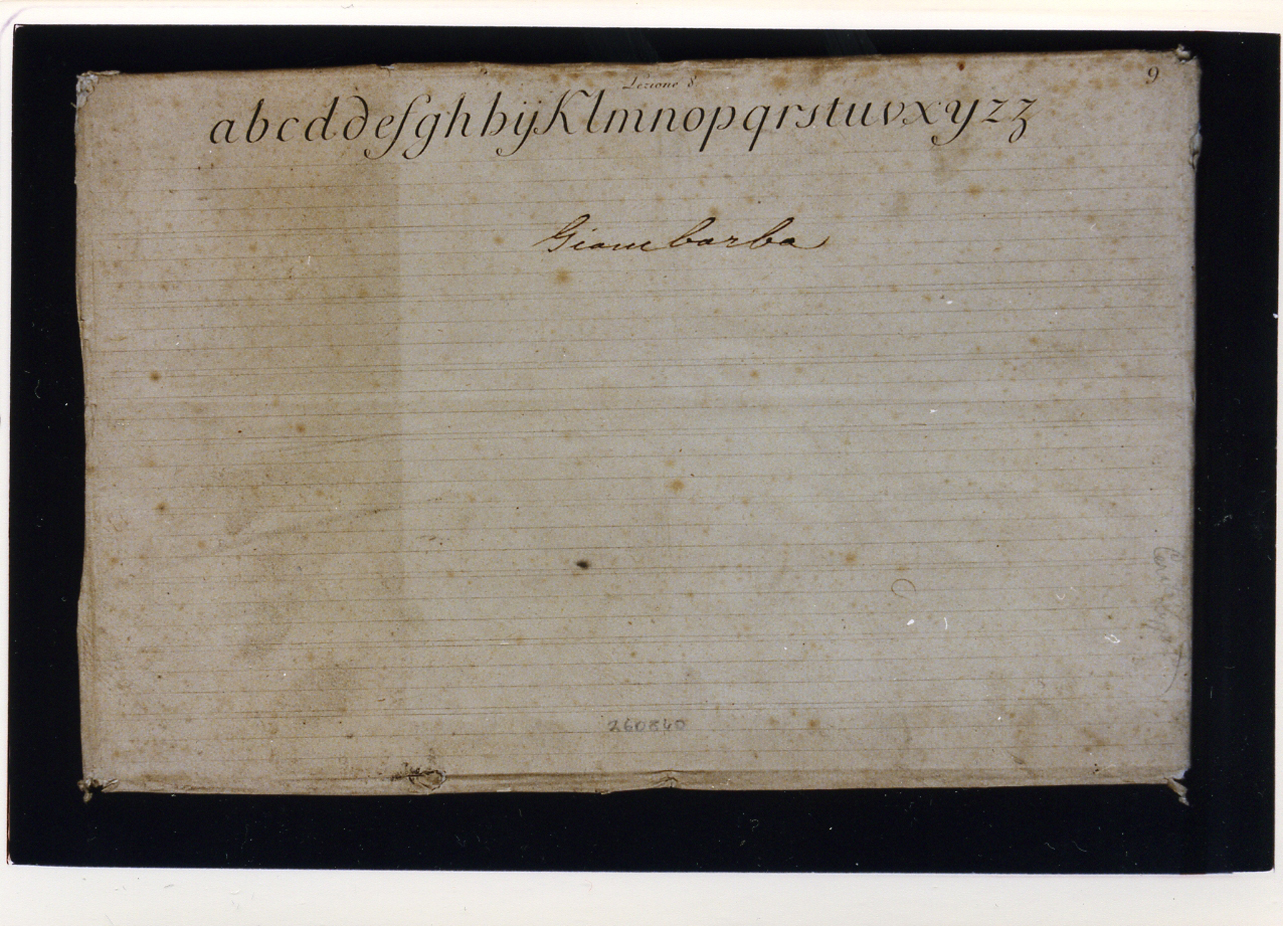 Lezione 8
9
abcddefghhijKlmnopqrstuvxyzz
Giambarba
260840